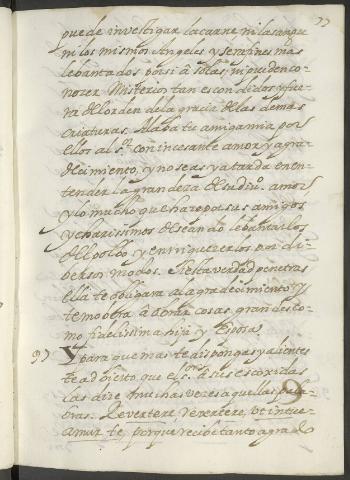 puede investigar la carne ni la sangre
ni los mismos Angeles y serafines mas
lebantados por si â solas, ni pueden co-
nozer Misterios tan escondidos y fue-
ra del orden de la gracia de las demas
criaturas. Alaba tu amiga mia por
ellos al Sr. con incesante amor y agra-
decimiento, y no seas ya tarda en en-
tender la grandeza de su diuo. amor
y lo mucho que haze por sus amigos
y charissimos deseando lebantarlos
del polbo y enriquezerlos por di-
bersos modos. Si esta verdad penetras
ella te obligara al agradecimiento y
te mobera â obrar cosas grandes co-
mo fidelissima hija y Esposa
93) Y para que mas te dispongas y alientes
te adbierto que el Sor. â sus escojidas
las dize muchas vezes aquellas pala-
bras. Revertere, revertere, vt intue-
amur te porque recibe tanto agrado